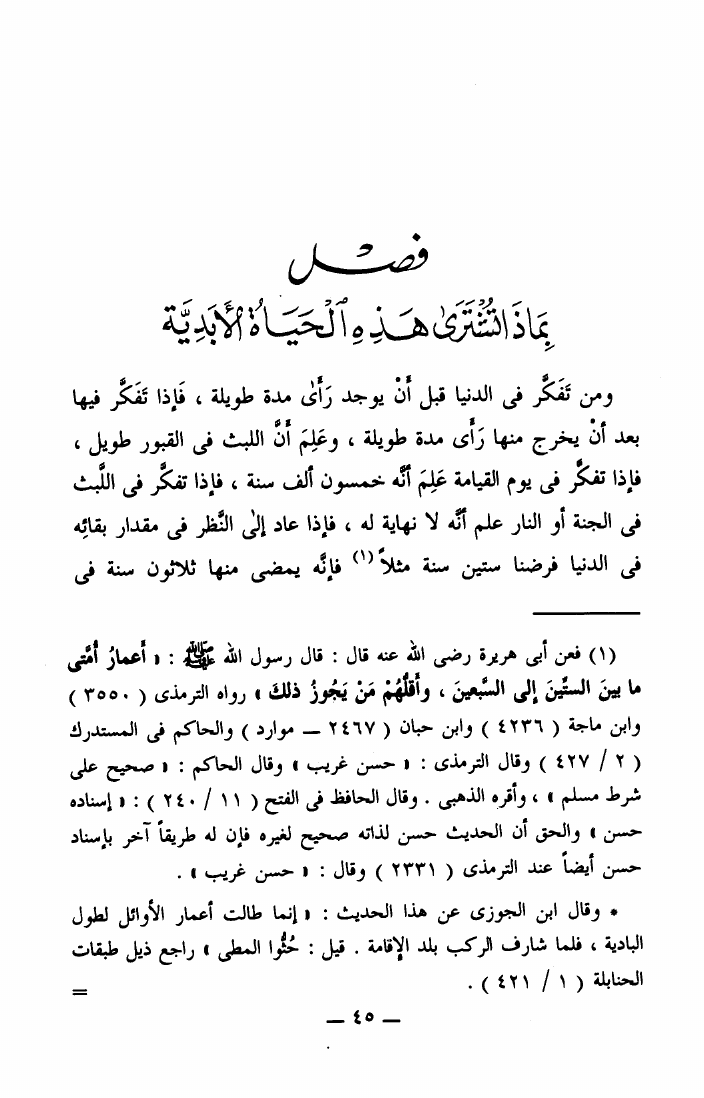 فصل
بماذا تشترى هذه الحياة الأبدية
ومن تَفَكَّر فى الدنيا قبل أَنْ يوجد رَأَىٰ مدة طويلة ، فَإذا تَفَكَّر فيها
بعد أنْ يخرج منها رَأَى مدة طويلة ، وعَلِمَ أَنَّ اللبث فى القبور طويل ،
فإذا تفكَّر فى يوم القيامة عَلِمَ أنَّه خمسون ألف سنة ، فإذا تفكَّر فى اللَّبث
فى الجنة أو النار علم أنَّه لا نهاية له ، فإذا عاد إلىٰ النَّظر فى مقدار بقائِه
فى الدنيا فرضنا ستين سنة مثلاً (١) فإنَّه يمضى منها ثلاثون سنة فى
(١) فعن أبى هريرة رضى الله عنه قال : قال رسول الله ﷺ : « أعمارُ أُمَّتى
ما بينَ الستِّينَ إلى السَّبعينَ ، وأَقلُّهُمْ مَنْ يَجوزُ ذلكَ » رواه الترمذى ( ٣٥٥٠ )
وابن ماجة ( ٤٢٣٦ ) وابن حبان ( ٢٤٦٧ – موارد ) والحاكم فى المستدرك
( ٢ / ٤٢٧ ) وقال الترمذى : « حسن غريب » وقال الحاكم : « صحيح على
شرط مسلم » ، وأقره الذهبى . وقال الحافظ فى الفتح ( ١١ / ٢٤٠ ) : « إسناده
حسن » والحق أن الحديث حسن لذاته صحيح لغيره فإن له طريقاً آخر بإسناد
حسن أيضاً عند الترمذى ( ٢٣٣١ ) وقال : « حسن غريب » .
* وقال ابن الجوزى عن هذا الحديث : « إنما طالت أعمار الأوائل لطول
البادية ، فلما شارف الركب بلد الإقامة . قيل : حُثُّوا المطى » راجع ذيل طبقات
الحنابلة ( ١ / ٤٢١ ) .
=
– ٤٥ –